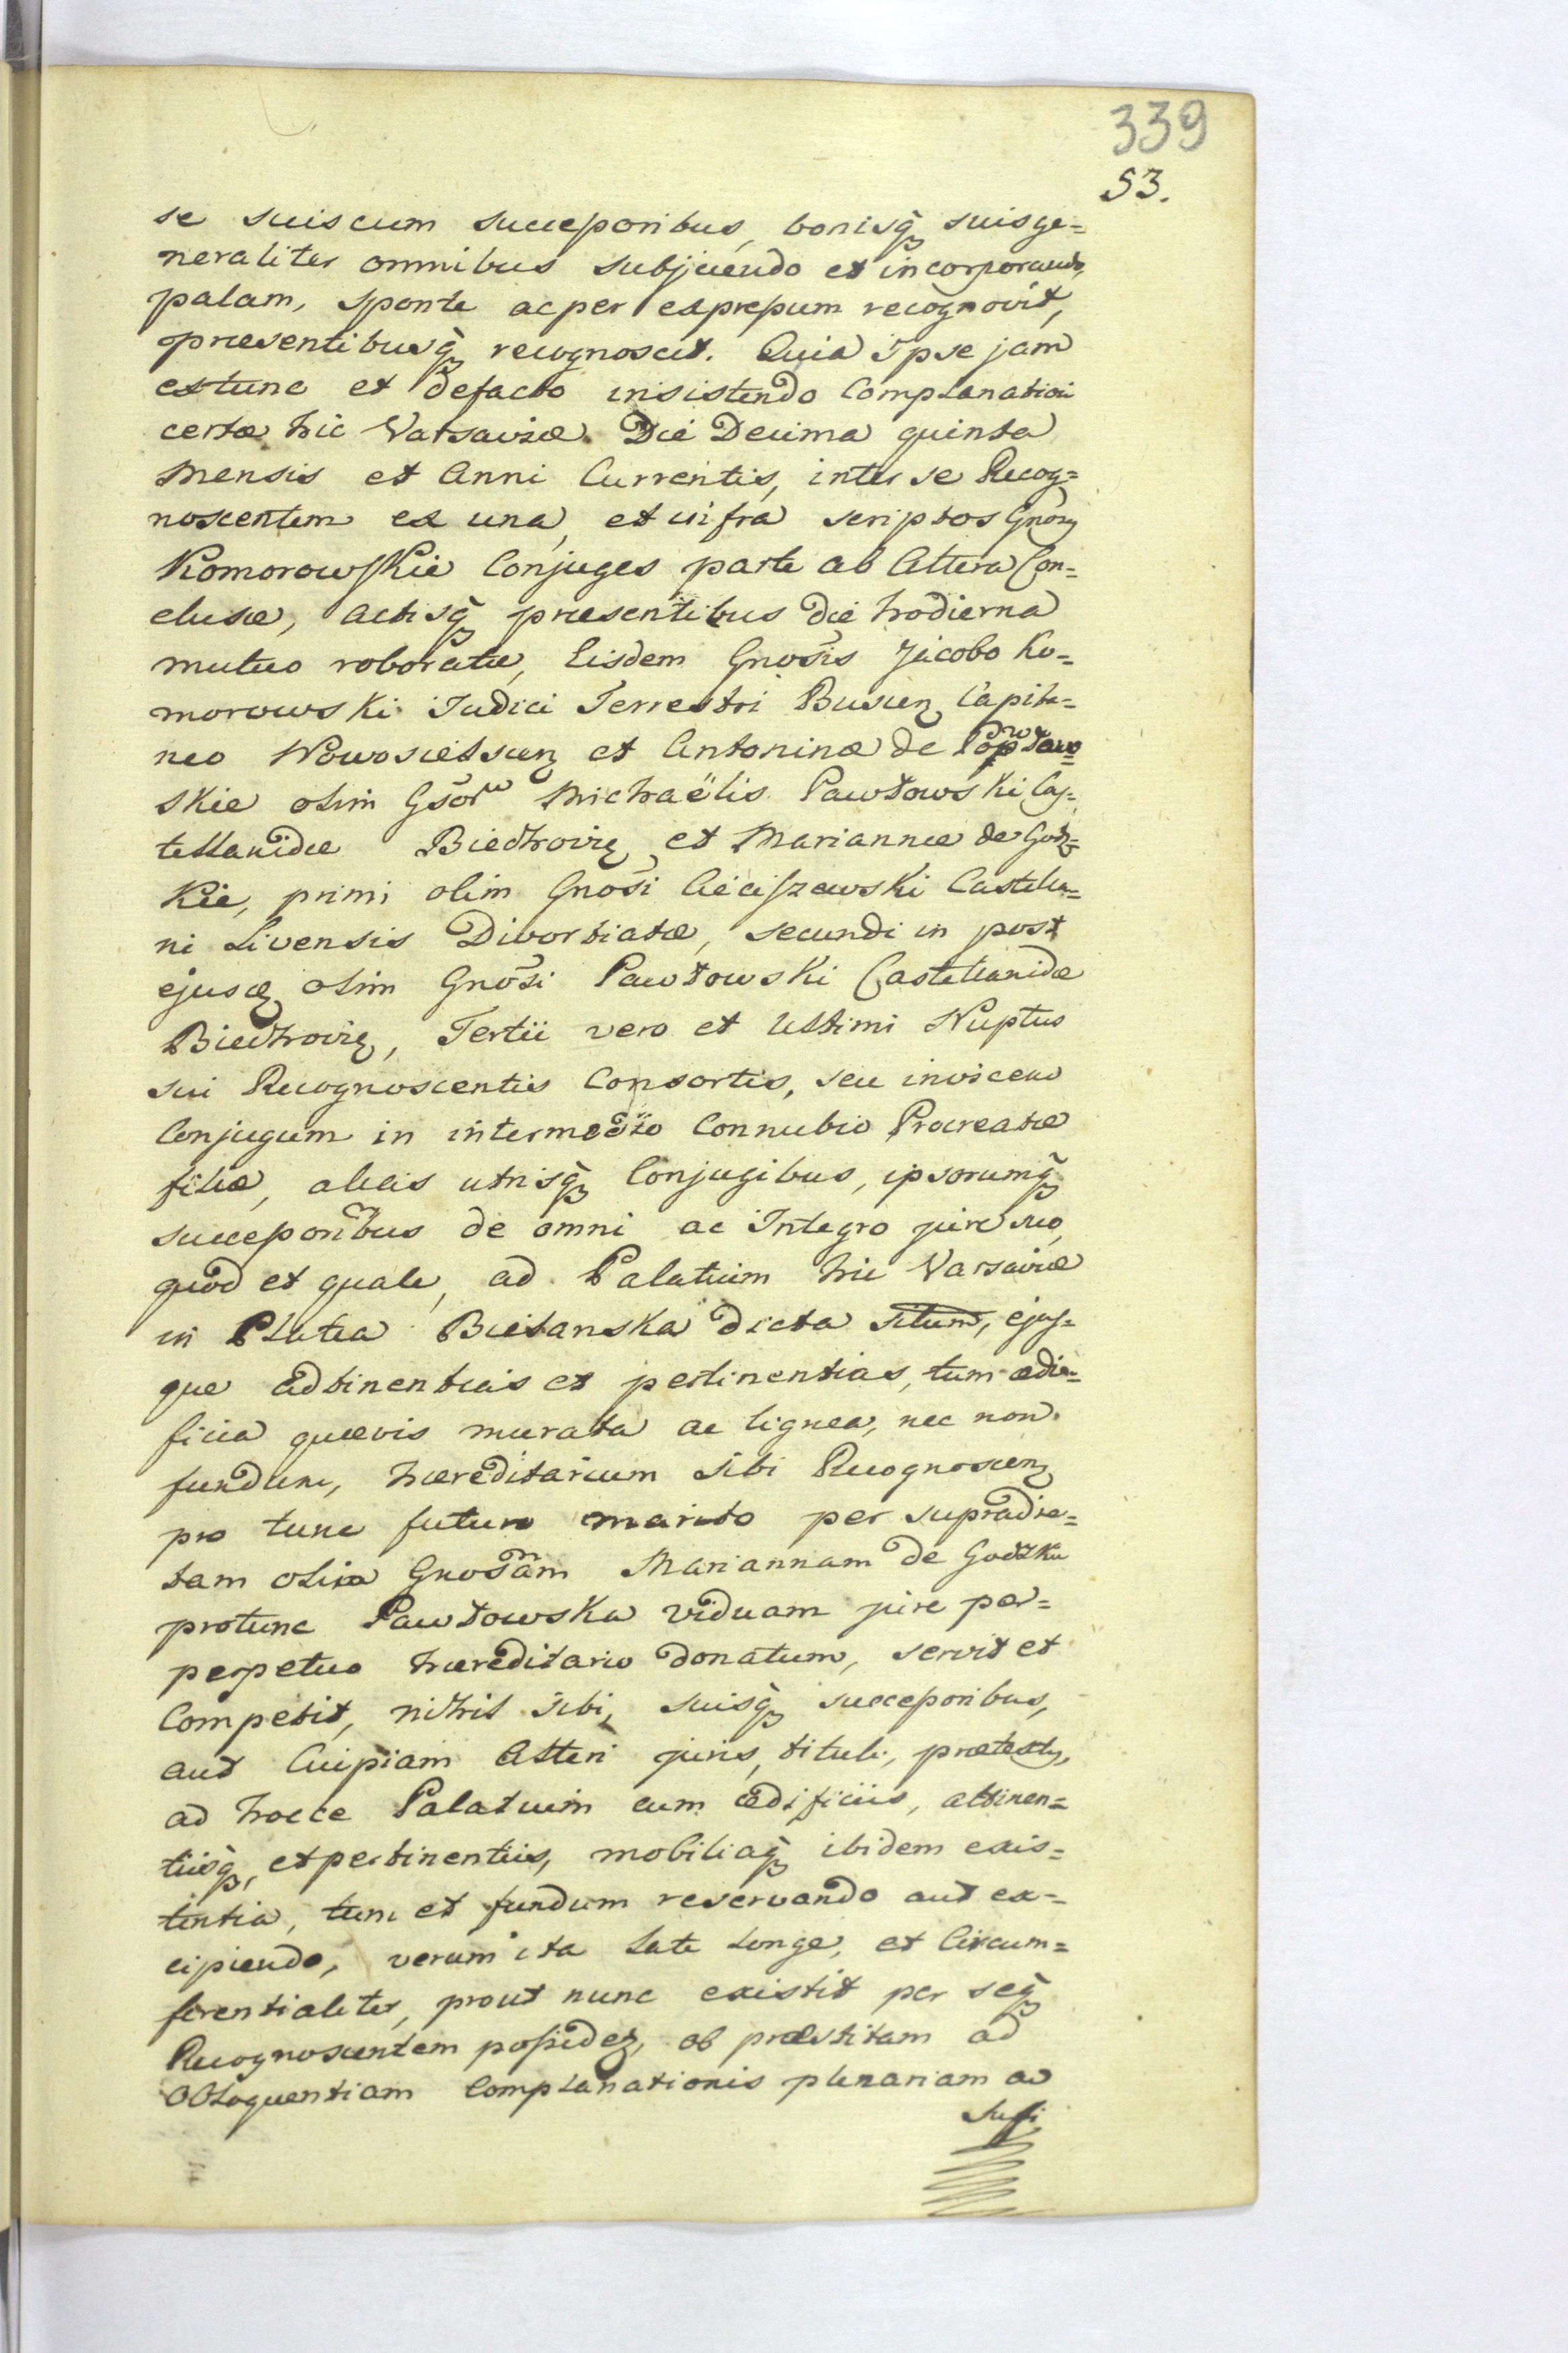 339
53.
se suiscum successoribus, bonisq̃ suis ge=
neraliter omnibus subjiciendo et incorporando,
palam, sponte ac per expressum recognovit,
præsentibusq̃ recognoscit. Quia ipse jam
extunc et defacto insistendo Complanationi
certæ hic Varsaviæ Die Decima quinta
Mensis et Anni Currentis, inter se Recog=
noscentem ex una, et infra scriptos Gnõs
Komorowskie Conjuges parte ab Altera Con=
clusæ, actisq̃ præsentibus die hodierna
mutuo roboratæ, Eisdem Gnõsis Jacobo Ko=
morowski Judici Terrestri Buscen Capita=
neo Nowosielscen et Antoninæ de Pawłow=
skie olim Gsõr Michaëlis Pawłowski Cas=
tellanidæ Biechovien, et Mariannæ de Godz=
kie, primi olim Gnõsi Cieciszewski Castella=
ni Livensis Divortiatæ, secundi in post
ejusq, olim Gnõsi Pawłowski Castellanidæ
Biechovien, Tertii vero et Ultimi Nuptus
sui Recognoscentis Consortis, seu invicem
Conjugum in intermedio Connubio Procreatæ
filiæ, aliàs utrisq̃ Conjugibus, ipsorumq̃
successoribus de omni ac Integro jure suo,
quod et quale, ad Palatium hic Varsaviæ
in Platea Bielanska dicta situm, ejus=
que adtinentias et pertinentias, tum ædi=
ficia quævis murata ac lignea, nec non
fundum, hæreditarium sibi Recognoscen
pro tunc futuro marito per supradic=
tam olim Gnõsam Mariannam de Godzkie
protunc Pawłowska viduam jure per=
perpetuo hæreditario donatum, servit et
Competit, nihil sibi, suisq̃ successoribus,
aut Cuipiam Alteri juris, tituli, prætextus,
ad hocce Palatium cum ædificiis, attinen=
tiisq̃, et pertinentiis, mobiliaq̃ ibidem exis=
tentia, tum et fundum reservando aut ex=
cipiendo, verum ita late longe, et Circum=
ferentialiter, prout nunc existit per seq̃
Recognoscentem possidet, ob præstitam ad
Obloquentiam Complanationis plenariam ac
sufi